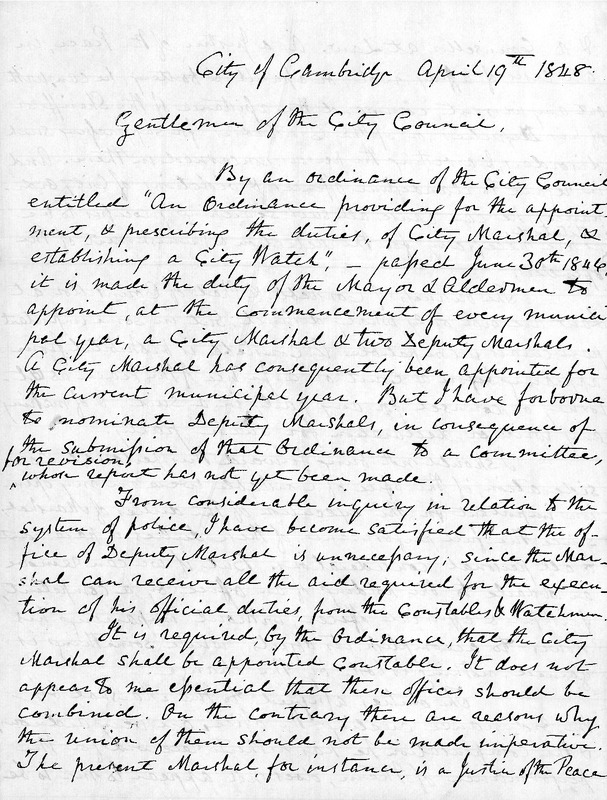 City of Cambridge April 19th 1848.
Gentlemen of the City Council,
By an ordinance of the City Council
entitled "An Ordinance providing for the appoint
ment, & prescribing the duties, of City Marshal, &
establishing a City Watch", – passed June 30th 1846,
it is made the duty of the Mayor & Aldermen to
appoint, at the commencement of every munici
pal year, a City Marshal & two Deputy Marshals.
A City Marshal has consequently been appointed for
the current municipal year. But I have forborne
to nominate Deputy Marshals, in consequence of
the submission of that Ordinance to a Committee,
for revision,
^ whose report has not yet been made.
From considerable inquiry in relation to the
system of police, I have become satisfied that the of-
fice of Deputy Marshal is unnecessary; since the Mar-
shal can receive all the aid required for the execu-
tion of his official duties, from the Constables & Watchmen.
It is required, by the Ordinance, that the City
Marshal shall be appointed Constable. It does not
appear to me essential that these offices should be
combined. On the contrary there are reasons why
the union of them should not be made imperative.
The present Marshal, for instance, is a Justice of the Peace